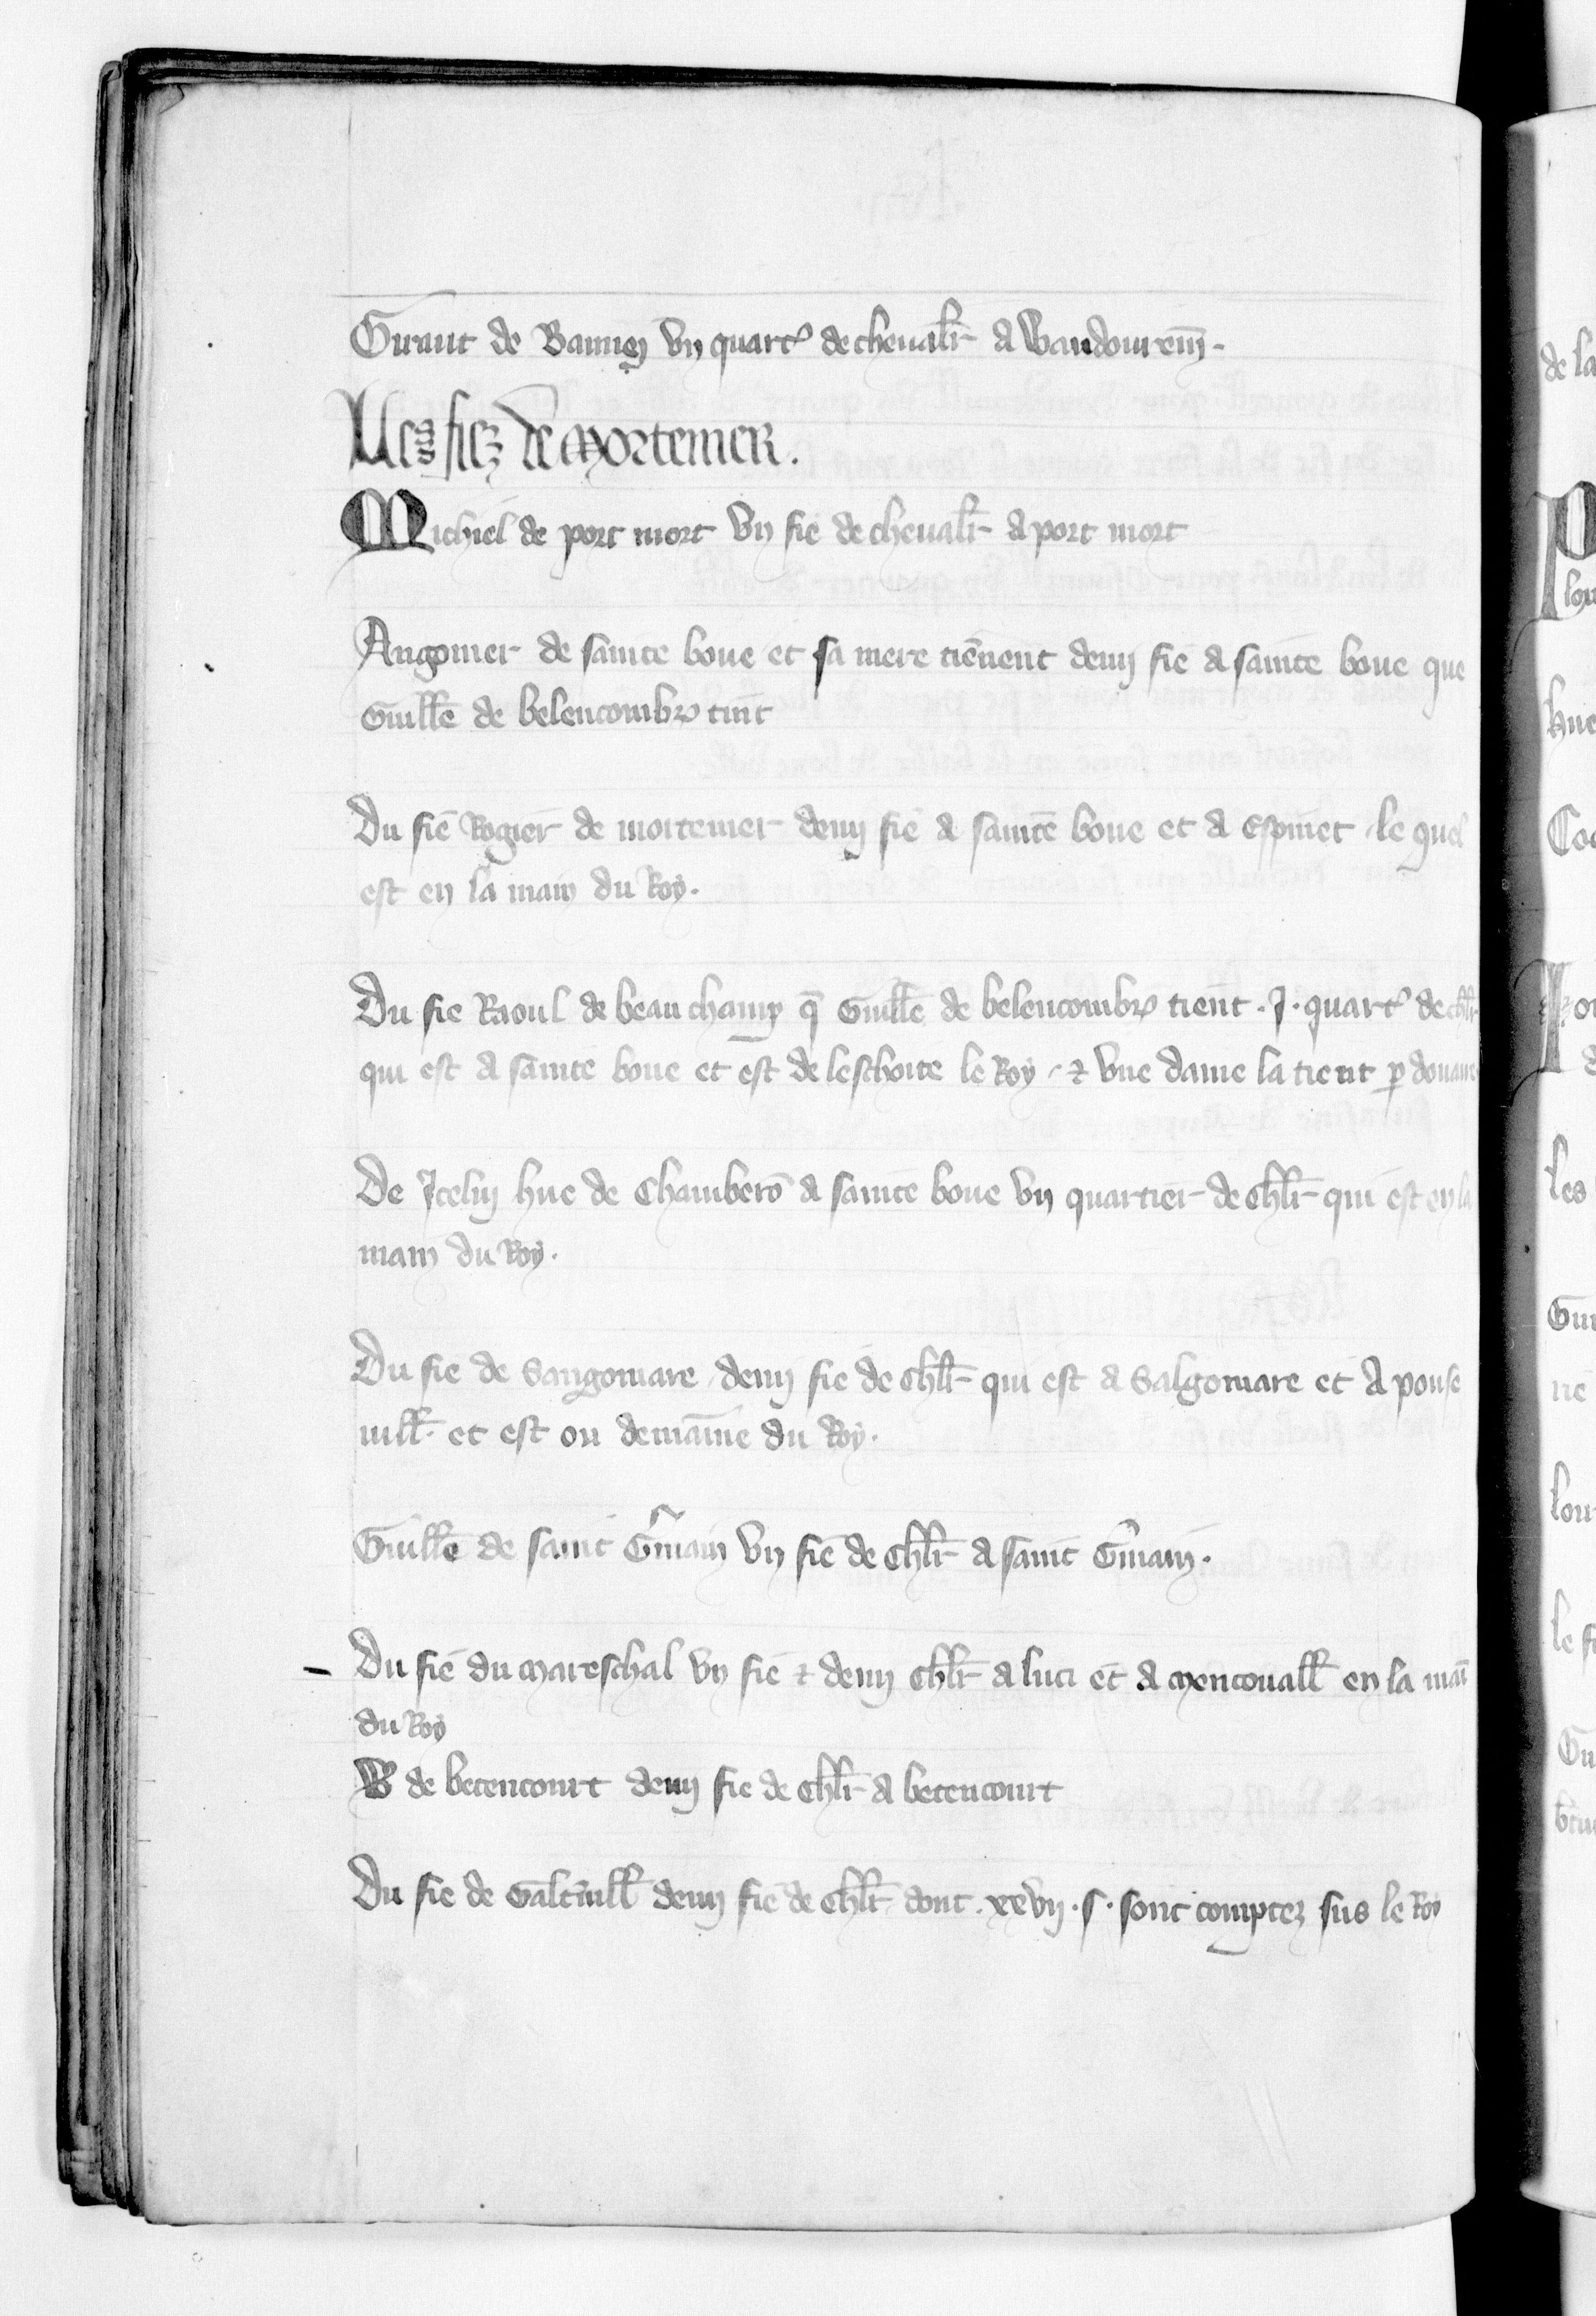 Giraut de Banney vn quart' de chevalr̄ a Wandourem̄.
Les fiez de Mortemer.
Michiel de port mort vn fie de chevalr̄ a port mort
Angomer de sainte boue et sa mere tiēnent demy fie a sainte boue que
Guille de belencombre tint
Du fie Rogier de mortemer demy fie a sainte boue et a Espinet le quel
est en la main du Roy.
Du fie Raoul de beau champ q̄ Guille de belencombre tient .j. quart' de chlr̄
qui est a sainte boue et est de leschoite le Roy & vne dame la tient p douaire
De Jceluy hue de Chamberō a sainte boue vn quartier de chlr̄ qui est en la
main du Roy.
Du fie de Sangomare demy fie de chlr̄ qui est a Salgomare et a pouse
uill̄. et est ou demaine du Roy.
Guille de saint Gmain vn fie de chlr̄ a saint Gmain.
Du fie du Mareschal vn fie & demy chlr̄ a luci et a Mencouall̄ en la maī
du Roy
B de betencourt demy fie de chlr̄ a betencourt
Du fie de Galt'uill̄ demy fie de chlr̄ dont .xxvij. s. sont comptez sus le Roy
de la
P
lou
hue
Coc
les
Gui
ne
lou
le fi
Gu